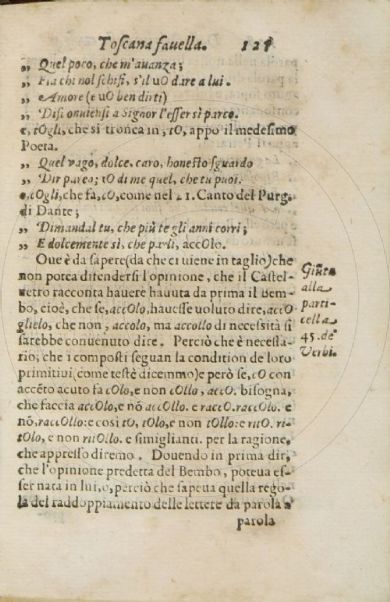 Toscana favella. 121
„ Quel poco, che m'avanza;
„ Fia chi nol schifi, s'il uO dare a lui.
„ Amore (e uO ben dirti)
„ Disconviensi a Signor l'esser sì parco.
e, tOgli, che si tronca in, tO, appo il medesimo
Poeta.
„ Quel vago, dolce, caro, honesto sguardo
„ Dir parea; tO di me quel, che tu puoi.
e, cOgli, che fa, cO, come nel 21. Canto del Purg.
di Dante;
„ Dimandal tu, che più te gli anni corri;
„ E dolcemente sì, che parli, accOlo.
Oue è da sapere (da che ci uiene in taglio) che
non potea difendersi l'opinione, che il Castel-
vetro racconta hauere hauuta da prima il Bem-
bo, cioè, che se, accOlo, hauesse uoluto dire, accO
glielo, che non, accolo, ma accollo di necessità si
sarebbe conuenuto dire. Perciò che è necessa-
rio, che i composti seguan la condition de loro
primitiui come testè dicemmo) e però se, cO con
accéto acuto fa cOlo, e non cOllo, accO. bisogna,
che faccia accOlo, e nó accOllo. e raccO. raccOlo. e
nó, raccOllo: e così tO, tOlo, e non tOllo: e ritO. ri-
tOlo, e non ritOllo. e simiglianti. per la ragione,
che appresso diremo. Douendo in prima dir,
che l'opinione predetta del Bembo, poteua es-
ser nata in lui, o, perciò che sapeua quella rego-
la del raddoppiamento delle lettere da parola a
parola
Giũta
alla
parti-
cella
45. de'
Verbi.